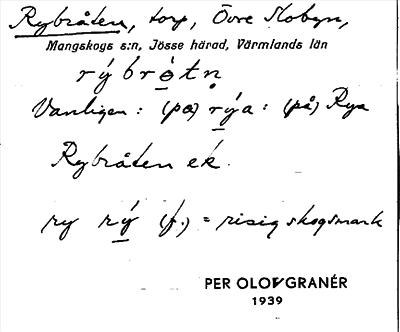 Rybråten, torp, Övre Mobyn,
Mangskogs s:n, Jösse härad, Värmlands län
rýbrótn̥
Vanligen: (pɑ) rýa: (på) Rya
Rybråten ek.
ry rý (f.) = risig skogsmark
PER OLOV GRANÉR
1939